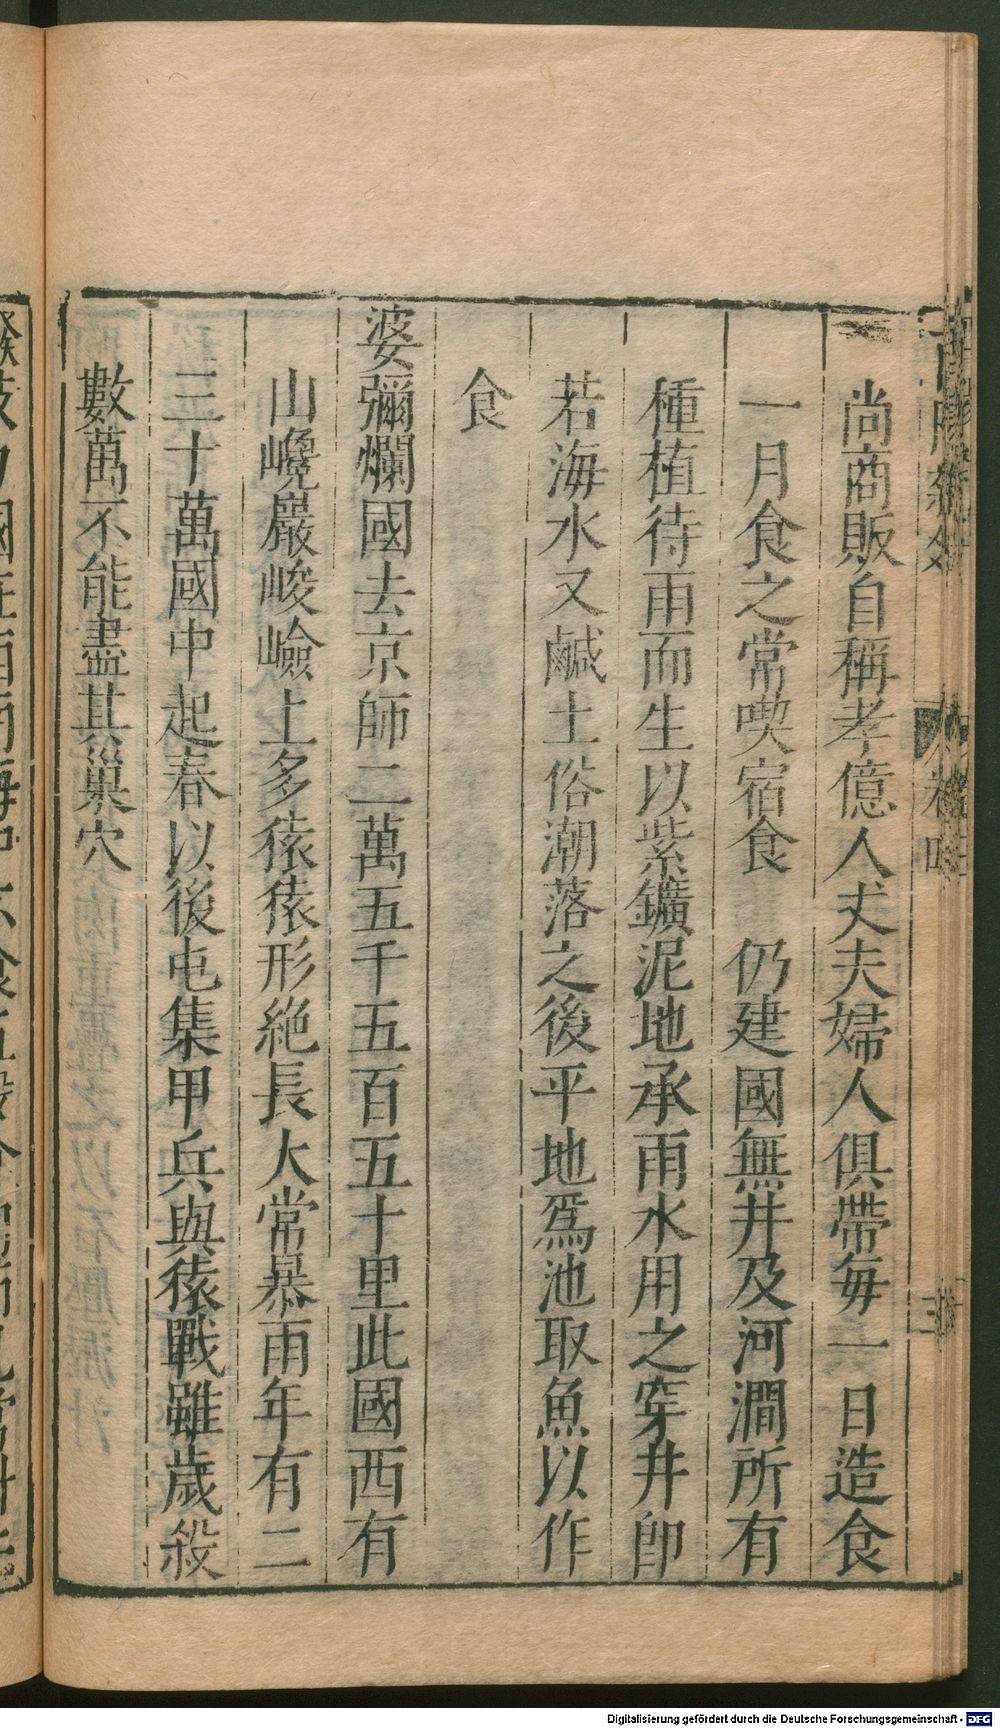 尚商販自稱孝億人丈夫婦人俱帶每一日造食
一月食之常喫宿食　仍建國無井及河澗所有
種植待雨而生以紫鑛泥地承雨水用之穿井即
若海水又鹹土俗潮落之後平地爲池取魚以作
食
婆彌爛國去京師二萬五千五百五十里此國西有
山巉巖峻嶮上多猿猿形絶長大常暴雨年有二
三十萬國中起春以後屯集甲兵與猿戰雖歲殺
數萬不能盡其巢穴
Digitalisierung gefördert durch die Deutsche Forschungsgemeinschaft - DFG